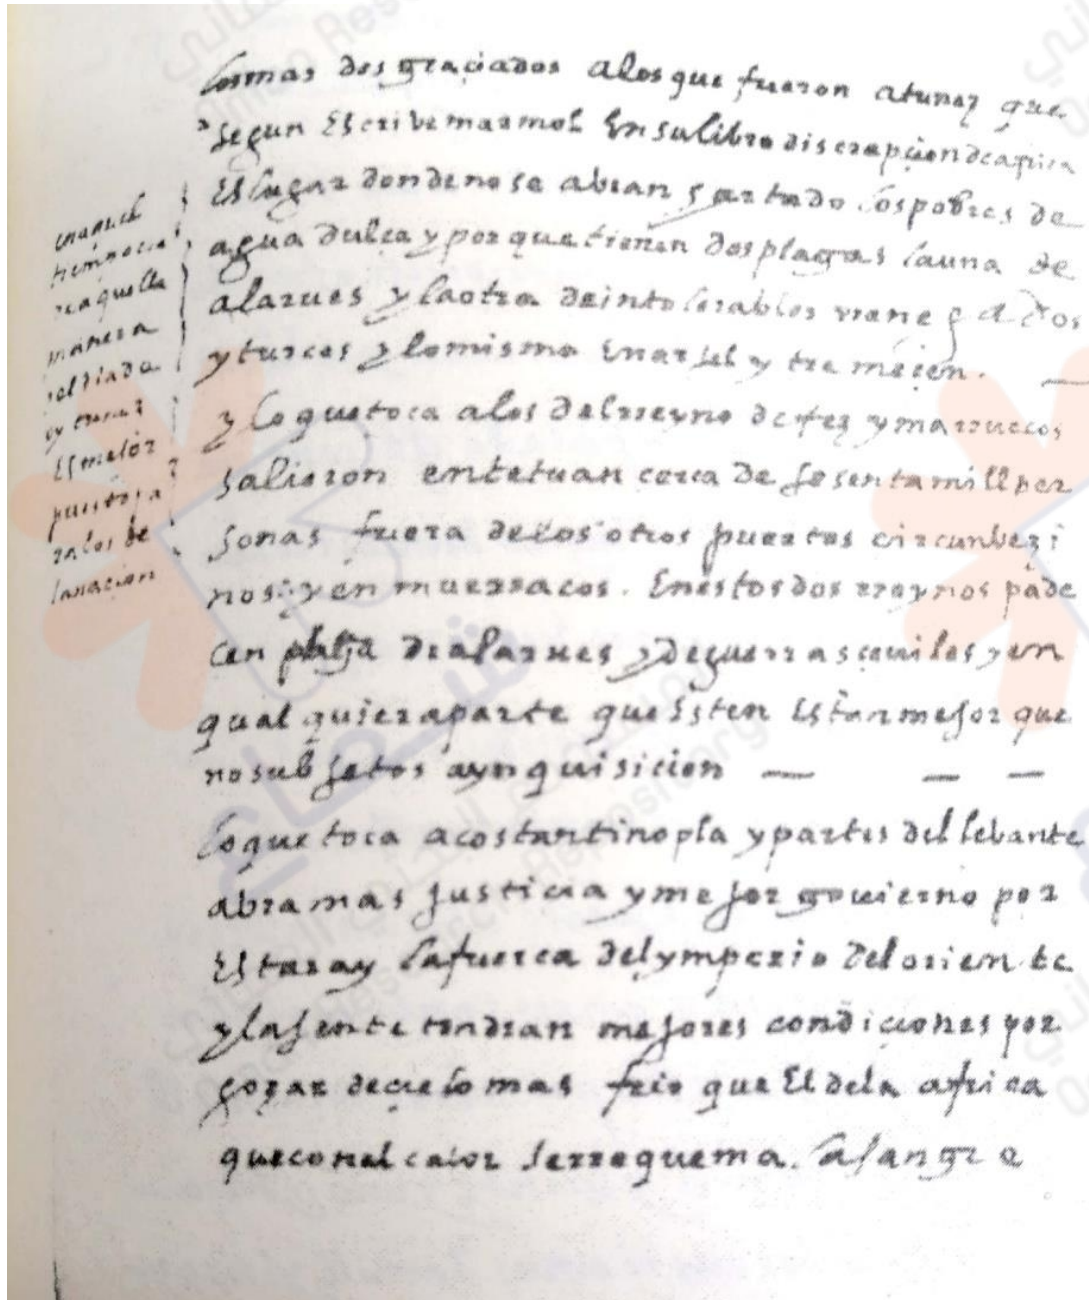 los mas desgraciados a los que fueron a tunez que
segun escrive marmol en su libro discrepçion de africa
es lugar donde no se abran hartado los pobres de
agua dulce y por que tienen dos plagas la una de
alarues y la otra de intolerables renegados
y turcos y lo mismo en arjel y tremeçen. —
y lo que toca a los del rreyno de fez y marruecos
salieron en tetuan cerca de sesenta mill per
sonas fuera de los otros puertos circunbezi
nos y en muerracos. en estos dos rreynos pade
cen plaga de alarues y de guerras çeuiles y en
qual quiera parte que esten estan mejor que
no subjetos a ynquisicion — — —
lo que toca a costantinopla y partes del lebante
abra mas justicia y mejor govierno por
estar ay la fuerca del ymperio del oriente
y la jente tendran mejores condiçiones por
goçar de cielo mas frio que el de la africa
que con el calor se rrequema. la sangre
en aquel
tiempo era
de aquella
manera
el dia de
oy tunez
es mejor
puerto pa
ra los de
la nacion